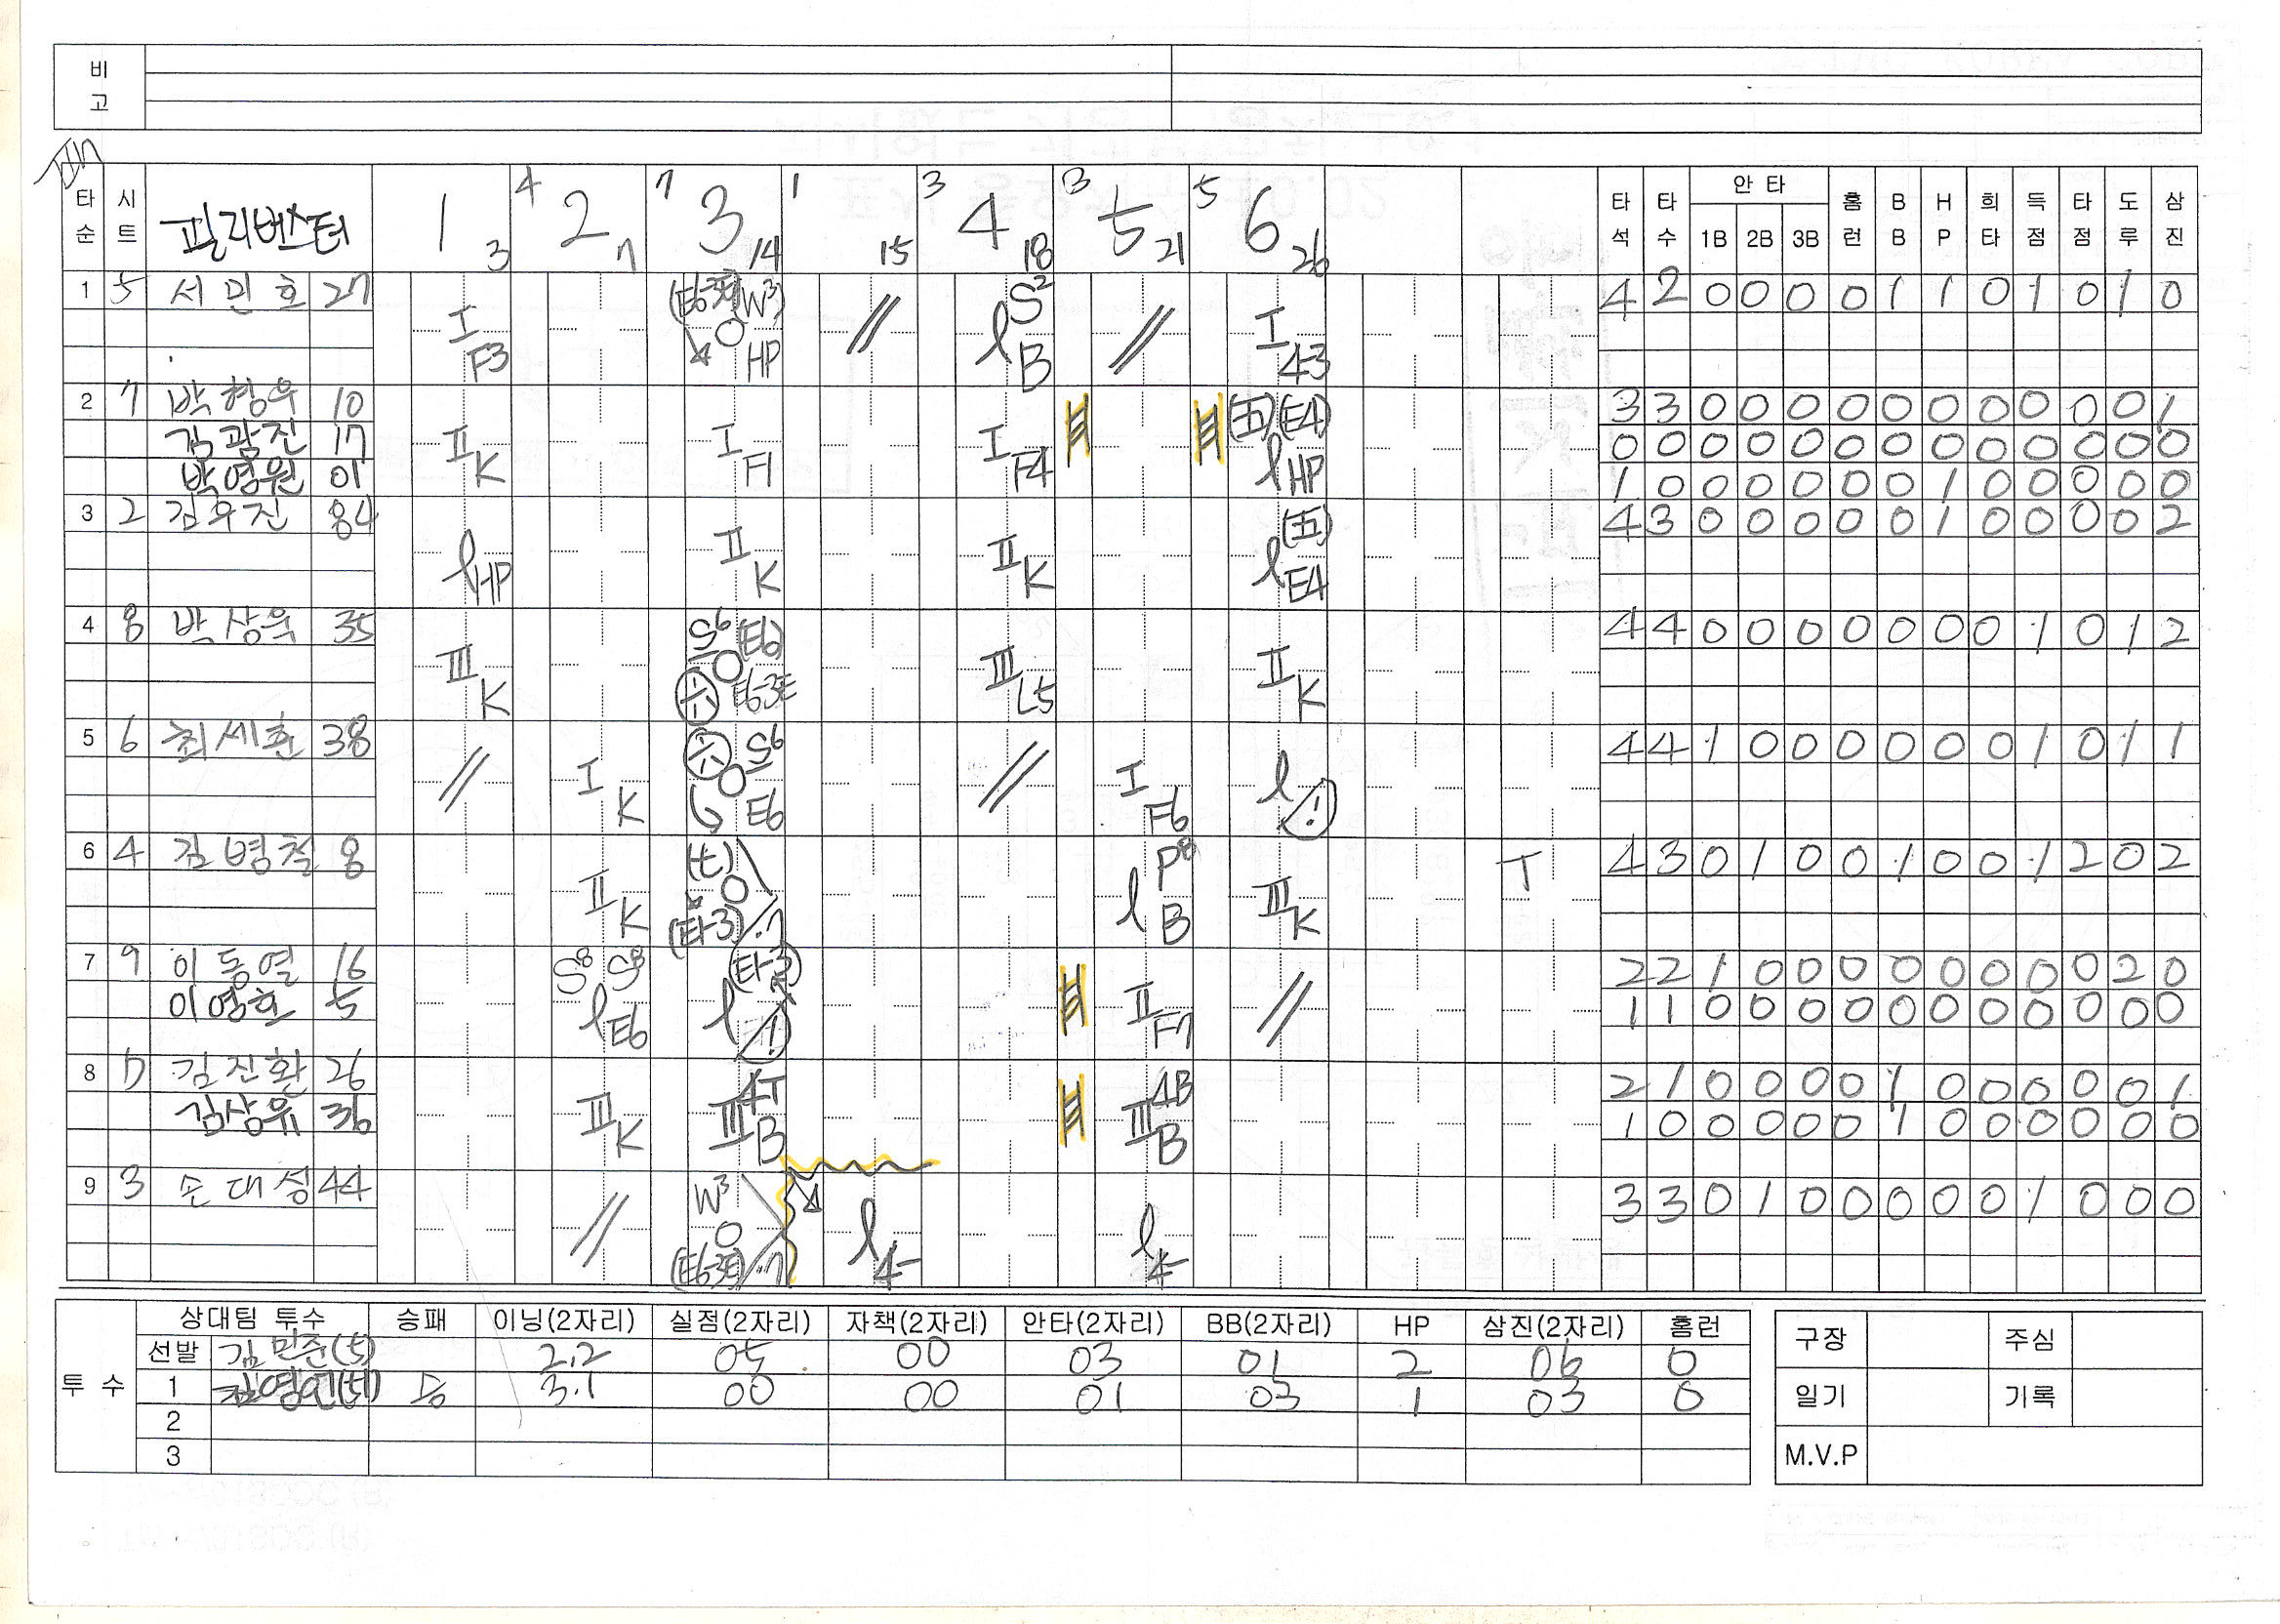 비고
타순 시트 필리버스터 1 3 4 2 7 7 3 14 1 15 3 4 18 3 5 21 5 6 26 타석 타수 안타 1B 2B 3B 홈런 BB HP 희타 득점 타점 도루 삼진
1 5 서민호 27 4 2 0 0 0 0 1 1 0 1 0 1 0
I F3 (W³) HP S² B I 4-3
2 7 박형우 10 3 3 0 0 0 0 0 0 0 0 0 0 1
김광진 17 0 0 0 0 0 0 0 0 0 0 0 0 0
박영원 01 1 0 0 0 0 0 0 1 0 0 0 0 0
II K I F1 I F4 (五) (E4) HP
3 2 김우진 84 4 3 0 0 0 0 0 1 0 0 0 0 2
HP II K II K (五) E4
4 8 박상욱 35 4 4 0 0 0 0 0 0 0 1 0 1 2
III K S⁶ (E6) III L5 II K
5 6 최세훈 38 4 4 1 0 0 0 0 0 0 1 0 1 1
I K S⁶ E6 I F6
6 4 김병철 8 T 4 3 0 1 0 0 1 0 0 1 2 0 2
II K (七) (E1-3) P⁸ B III K
7 9 이동열 16 2 2 1 0 0 0 0 0 0 0 0 2 0
이영호 5 1 1 0 0 0 0 0 0 0 0 0 0 0
S⁸ S⁸ E6 (E1-3) II F7
8 D 김진환 26 2 1 0 0 0 0 1 0 0 0 0 0 1
김상유 36 1 0 0 0 0 0 1 0 0 0 0 0 0
III K 4T III B 4B III B
9 3 손대성 44 3 3 0 1 0 0 0 0 0 1 0 0 0
W³ 4- 4-
투수 상대팀 투수 승패 이닝(2자리) 실점(2자리) 자책(2자리) 안타(2자리) BB(2자리) HP 삼진(2자리) 홈런
선발 김민준(5) 2.2 05 00 03 01 2 06 0
1 승 3.1 00 00 01 03 1 03 0
2
3
구장 주심
일기 기록
M.V.P